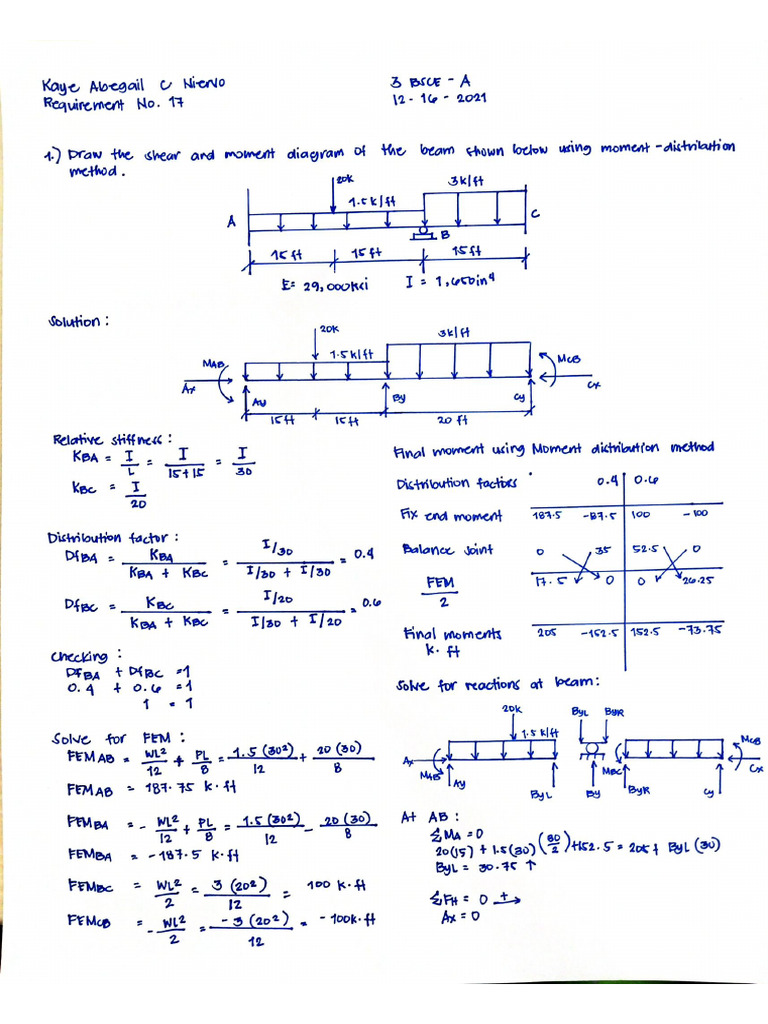 Kaye Abegail C Niervo
3 BSCE - A
Requirement No. 17
12 - 16 - 2021
1.) Draw the shear and moment diagram of the beam shown below using moment - distribution
method.
20K
3k/ft
1.5 k/ft
A
C
B
15 ft
15 ft
15 ft
E= 29,000Kci
I = 1,650in⁴
Solution :
20K
3k/ft
1.5 k/ft
MAB
MCB
Ax
Cx
Ay
By
Cy
15 ft
15 ft
20 ft
Relative stiffness :
KBA = I/L = I/15+15 = I/30
KBC = I/20
Distribution factor :
DfBA = KBA/KBA + KBC = I/30/I/30 + I/30 = 0.4
DfBC = KBC/KBA + KBC = I/20/I/30 + I/20 = 0.6
Checking :
DfBA + DfBC = 1
0.4 + 0.6 = 1
1 = 1
Solve for FEM :
FEMAB = WL²/12 + PL/8 = 1.5 (30²)/12 + 20 (30)/8
FEMAB = 187.75 k.ft
FEMBA = - WL²/12 + PL/8 = 1.5 (30²)/12 - 20 (30)/8
FEMBA = - 187.5 K.ft
FEMBC = WL²/2 = 3 (20²)/12 = 100 K.ft
FEMCB = - WL²/2 = - 3 (20²)/12 = - 100k.ft
Final moment using Moment distribution method
Distribution factors 0.4 0.6
Fix end moment 187.5 -187.5 100 - 100
Balance Joint 0 35 52.5 0
FEM/2 17.5 0 0 26.25
Final moments 205 -152.5 152.5 -73.75
k. ft
Solve for reactions at beam:
20K
ByL ByR
1.5 k/ft
MCB
Ax
MAB
MBC
Cx
Ay
ByL
By
ByR
Cy
At AB :
ΣMA = 0
20(15) + 1.5(30) (30/2) +152.5 = 205 + ByL (30)
ByL = 30.75 ↑
ΣFH = 0 +→
Ax = 0